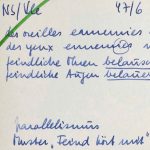 NS/Vee 47/6
des oreilles ennemies
des yeux ennemies
feindliche Ohren belausch
feindliche Augen belauer
parallelismus
Muster "Feind hört mit"